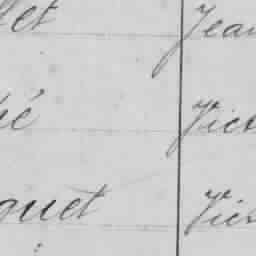 let Jean
é Vict
quet Vic